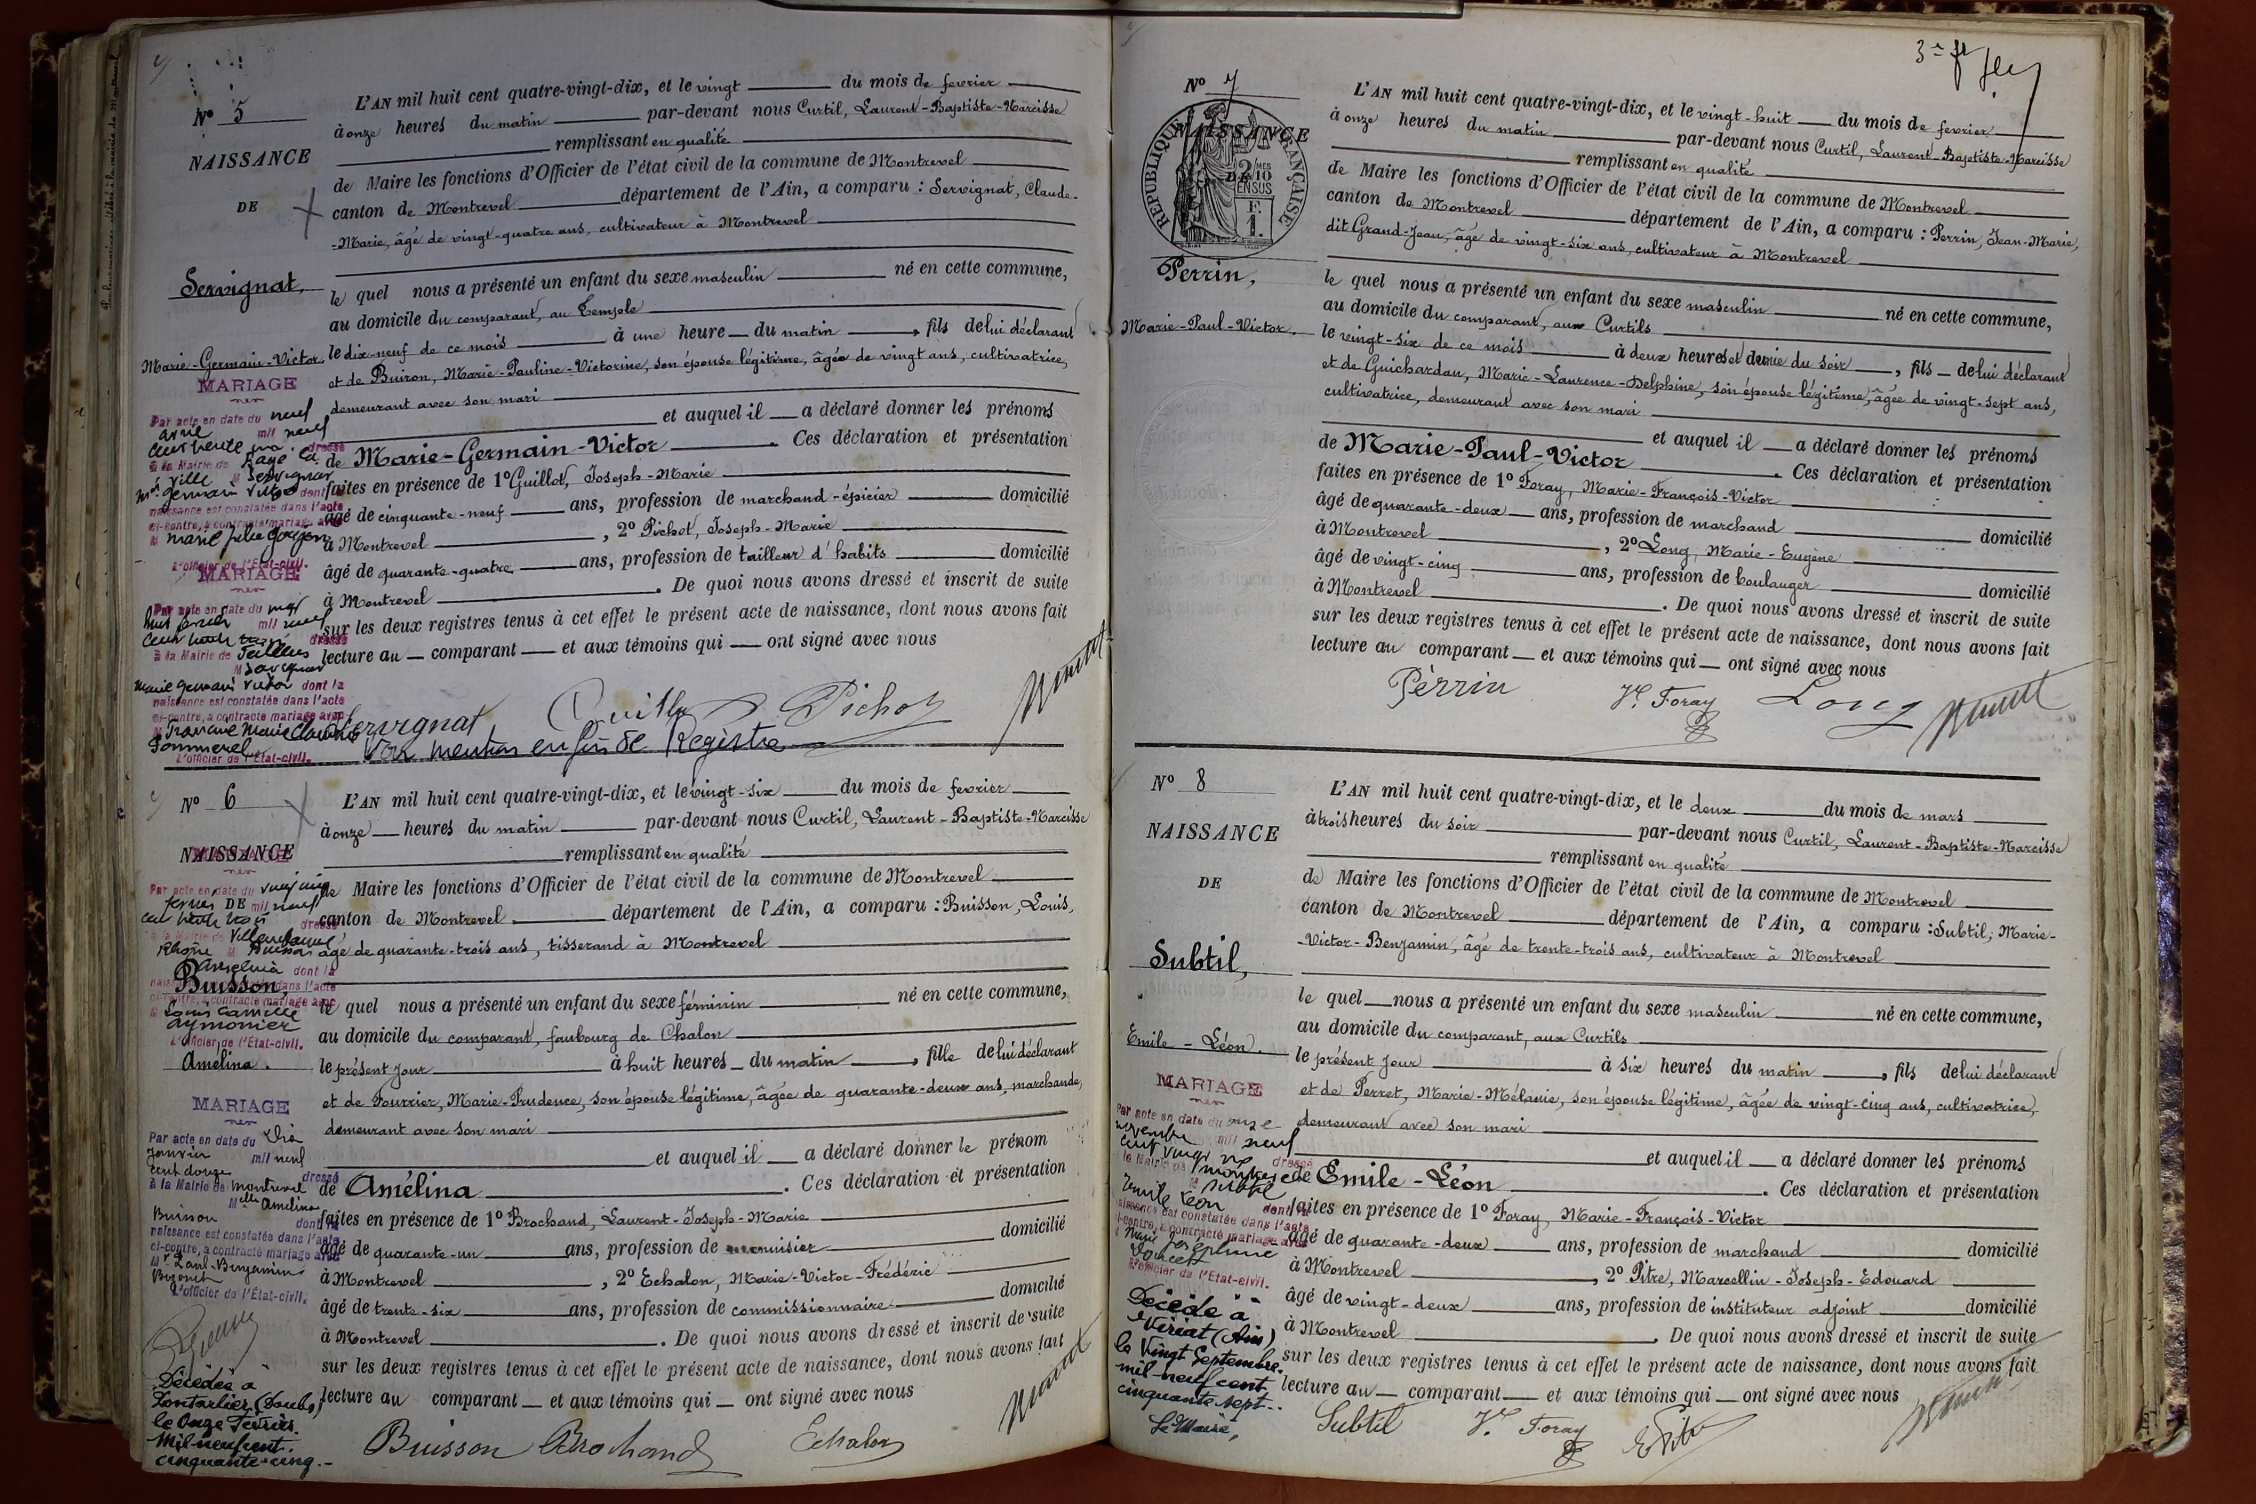 N° 5
NAISSANCE
DE
Servignat,
Marie-Germain-Victor
L'AN mil huit cent quatre-vingt-dix, et le vingt du mois de fevrier
à onze heures du matin par-devant nous Curtil, Laurent-Baptiste-Narcisse
remplissant en qualité
de Maire les fonctions d'Officier de l'état civil de la commune de Montrevel
canton de Montrevel département de l'Ain, a comparu : Servignat, Claude-
-Marie, âgé de vingt-quatre ans, cultivateur à Montrevel
le quel nous a présenté un enfant du sexe masculin né en cette commune,
au domicile du comparant, au Temple
le dix-neuf de ce mois à une heure du matin, fils de lui déclarant
et de Buiron, Marie-Pauline-Victorine, son épouse légitime, âgée de vingt ans, cultivatrice,
demeurant avec son mari
et auquel il a déclaré donner les prénoms
de Marie-Germain-Victor. Ces déclaration et présentation
faites en présence de 1° Guillot, Joseph-Marie
âgé de cinquante-neuf ans, profession de marchand-épicier domicilié
à Montrevel, 2° Pichot, Joseph-Marie
âgé de quarante-quatre ans, profession de tailleur d'habits domicilié
à Montrevel. De quoi nous avons dressé et inscrit de suite
sur les deux registres tenus à cet effet le présent acte de naissance, dont nous avons fait
lecture au comparant et aux témoins qui ont signé avec nous
Servignat Pichot
Voir mention en fin de Registre
MARIAGE
Par acte en date du neuf
avril mil neuf
cent trente dressé
à la Mairie de
ville M Servignat
Germain Victor dont la
naissance est constatée dans l'acte
ci-contre, a contracté mariage avec
M Marie
L'officier de l'Etat-civil.
MARIAGE
Par acte en date du
mil neuf
cent dressé
à la Mairie de
M Servignat
Marie Germain Victor dont la
naissance est constatée dans l'acte
ci-contre, a contracté mariage avec
M Marie
Pommerel
L'officier de l'Etat-civil.
N° 6
NAISSANCE
DE
Buisson,
Amélina.
L'AN mil huit cent quatre-vingt-dix, et le vingt-six du mois de fevrier
à onze heures du matin par-devant nous Curtil, Laurent-Baptiste-Narcisse
remplissant en qualité
de Maire les fonctions d'Officier de l'état civil de la commune de Montrevel
canton de Montrevel département de l'Ain, a comparu : Buisson, Louis,
âgé de quarante-trois ans, tisserand à Montrevel
le quel nous a présenté un enfant du sexe féminin né en cette commune,
au domicile du comparant, faubourg de Chalon
le présent jour à huit heures du matin, fille de lui déclarant
et de Fourrier, Marie-Prudence, son épouse légitime, âgée de quarante-deux ans, marchande,
demeurant avec son mari
et auquel il a déclaré donner le prénom
de Amélina. Ces déclaration et présentation
faites en présence de 1° Brochand, Laurent-Joseph-Marie
âgé de quarante-un ans, profession de menuisier domicilié
à Montrevel, 2° Echalon, Marie-Victor-Frédéric
âgé de trente-six ans, profession de commissionnaire domicilié
à Montrevel. De quoi nous avons dressé et inscrit de suite
sur les deux registres tenus à cet effet le présent acte de naissance, dont nous avons fait
lecture au comparant et aux témoins qui ont signé avec nous
Buisson Brochand Echalon
Par acte en date du vingt cinq
mil neuf
cent trente trois dressé
à la Mairie de Villeurbanne
Rhône M Buisson
Amelina dont la
naissance est constatée dans l'acte
ci-contre, a contracté mariage avec
M Louis Camille
Aymonier
L'officier de l'Etat-civil.
MARIAGE
Par acte en date du dix
janvier mil neuf
cent douze dressé
à la Mairie de Montrevel
Melle Amelina
Buisson dont la
naissance est constatée dans l'acte
ci-contre, a contracté mariage avec
Mr Paul-Benjamin
L'officier de l'Etat-civil.
Décédée à
Pontarlier (Doubs)
le Onze Février
mil neuf cent
cinquante-cinq.-
3me ft
N° 7
NAISSANCE
DE
RÉPUBLIQUE FRANÇAISE
Perrin,
Marie-Paul-Victor.
L'AN mil huit cent quatre-vingt-dix, et le vingt-huit du mois de fevrier
à onze heures du matin par-devant nous Curtil, Laurent-Baptiste-Narcisse
remplissant en qualité
de Maire les fonctions d'Officier de l'état civil de la commune de Montrevel
canton de Montrevel département de l'Ain, a comparu : Perrin, Jean-Marie,
dit Grand-Jean, âgé de vingt-six ans, cultivateur à Montrevel
le quel nous a présenté un enfant du sexe masculin né en cette commune,
au domicile du comparant, aux Curtils
le vingt-six de ce mois à deux heures et demie du soir, fils de lui déclarant
et de Guichardan, Marie-Laurence-Delphine, son épouse légitime, âgée de vingt-sept ans,
cultivatrice, demeurant avec son mari
et auquel il a déclaré donner les prénoms
de Marie-Paul-Victor. Ces déclaration et présentation
faites en présence de 1° Foray, Marie-François-Victor
âgé de quarante-deux ans, profession de marchand domicilié
à Montrevel, 2° Long, Marie-Eugène
âgé de vingt-cinq ans, profession de boulanger domicilié
à Montrevel. De quoi nous avons dressé et inscrit de suite
sur les deux registres tenus à cet effet le présent acte de naissance, dont nous avons fait
lecture au comparant et aux témoins qui ont signé avec nous
Perrin Vr Foray Long
N° 8
NAISSANCE
DE
Subtil,
Emile-Léon.
L'AN mil huit cent quatre-vingt-dix, et le deux du mois de mars
à trois heures du soir par-devant nous Curtil, Laurent-Baptiste-Narcisse
remplissant en qualité
de Maire les fonctions d'Officier de l'état civil de la commune de Montrevel
canton de Montrevel département de l'Ain, a comparu : Subtil, Marie-
-Victor-Benjamin, âgé de trente-trois ans, cultivateur à Montrevel
le quel nous a présenté un enfant du sexe masculin né en cette commune,
au domicile du comparant, aux Curtils
le présent jour à six heures du matin, fils de lui déclarant
et de Perret, Marie-Mélanie, son épouse légitime, âgée de vingt-cinq ans, cultivatrice,
demeurant avec son mari
et auquel il a déclaré donner les prénoms
de Emile-Léon. Ces déclaration et présentation
faites en présence de 1° Foray, Marie-François-Victor
âgé de quarante-deux ans, profession de marchand domicilié
à Montrevel, 2° Pitre, Marcellin-Joseph-Edouard
âgé de vingt-deux ans, profession de instituteur adjoint domicilié
à Montrevel. De quoi nous avons dressé et inscrit de suite
sur les deux registres tenus à cet effet le présent acte de naissance, dont nous avons fait
lecture au comparant et aux témoins qui ont signé avec nous
Subtil Vr Foray EPitre
MARIAGE
Par acte en date du onze
novembre mil neuf
cent vingt dressé
la Mairie de
M Subtil
Emile Léon dont la
naissance est constatée dans l'acte
ci-contre, a contracté mariage avec
Joséphine
L'officier de l'Etat-civil.
Décédé à
Viriat (Ain)
le Vingt Septembre
mil neuf cent
cinquante sept.
Le Maire,